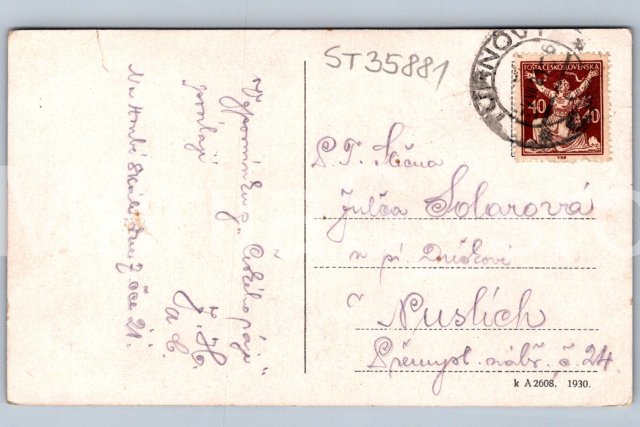 ST35881
TURNOV
POŠTA ČESKOSLOVENSKA
40 40
Vzpomínky z „Českého ráje"
zasílají
J. H.
a C.
Na Hrubé Skále, dne 7. čce 21.
P. T. Slečna
Julča Solarová
u pí.
v Nuslích
Přemysl. nábř. č. 24.
k A 2608. 1930.